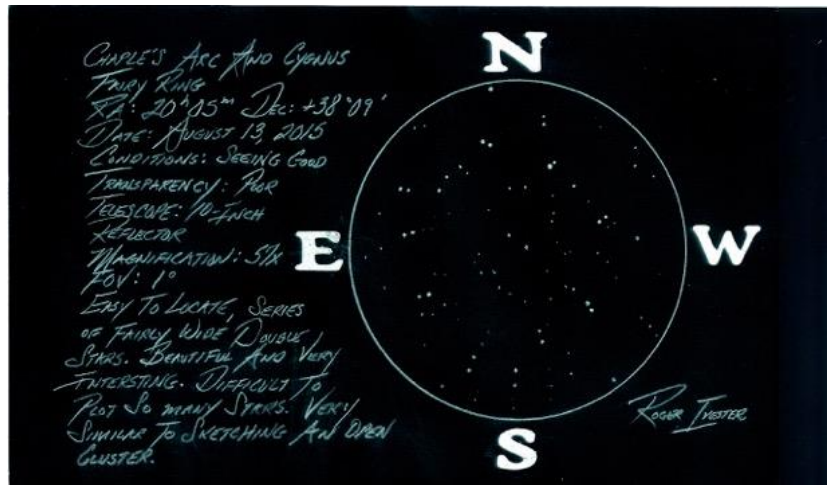 CHAPLE'S ARC AND CYGNUS
FAIRY RING
RA: 20ʰ05ᵐ DEC: +38°09'
DATE: AUGUST 13, 2015
CONDITIONS: SEEING GOOD
TRANSPARENCY: POOR
TELESCOPE: 10-INCH
REFLECTOR
MAGNIFICATION: 57X
FOV: 1°
EASY TO LOCATE, SERIES
OF FAIRLY WIDE DOUBLE
STARS. BEAUTIFUL AND VERY
INTERSTING. DIFFICULT TO
PLOT SO MANY STARS. VERY
SIMILAR TO SKETCHING AN OPEN
CLUSTER.
N
E
W
S
ROGER IVESTER